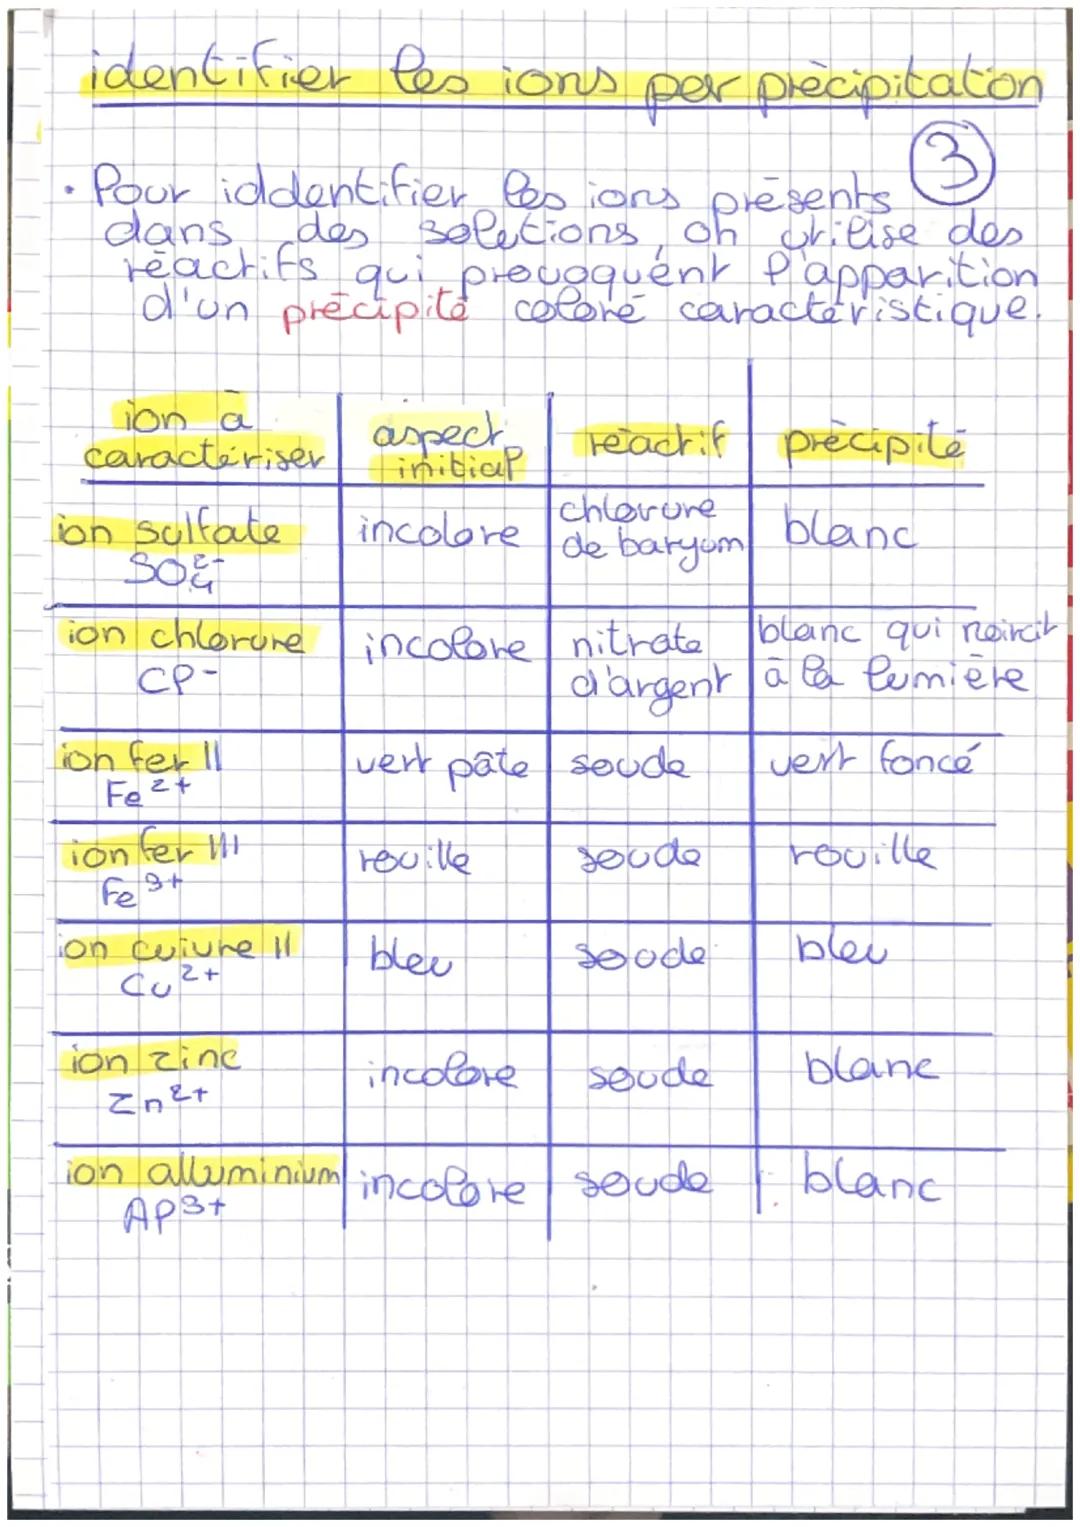 identifier les ions per précipitation
③
• Pour iddentifier les ions présents
dans des solutions, on utilise des
réactifs qui provoquent l'apparition
d'un précipité coloré caractéristique.
ion à caractériser | aspect initial | réactif | précipité
ion sulfate SO₄²⁻ | incolore | chlorure de baryum | blanc
ion chlorure Cl⁻ | incolore | nitrate d'argent | blanc qui noircit à la lumière
ion fer II Fe²⁺ | vert pâle | soude | vert foncé
ion fer III Fe³⁺ | rouille | soude | rouille
ion cuivre II Cu²⁺ | bleu | soude | bleu
ion zinc Zn²⁺ | incolore | soude | blanc
ion alluminium Al³⁺ | incolore | soude | blanc